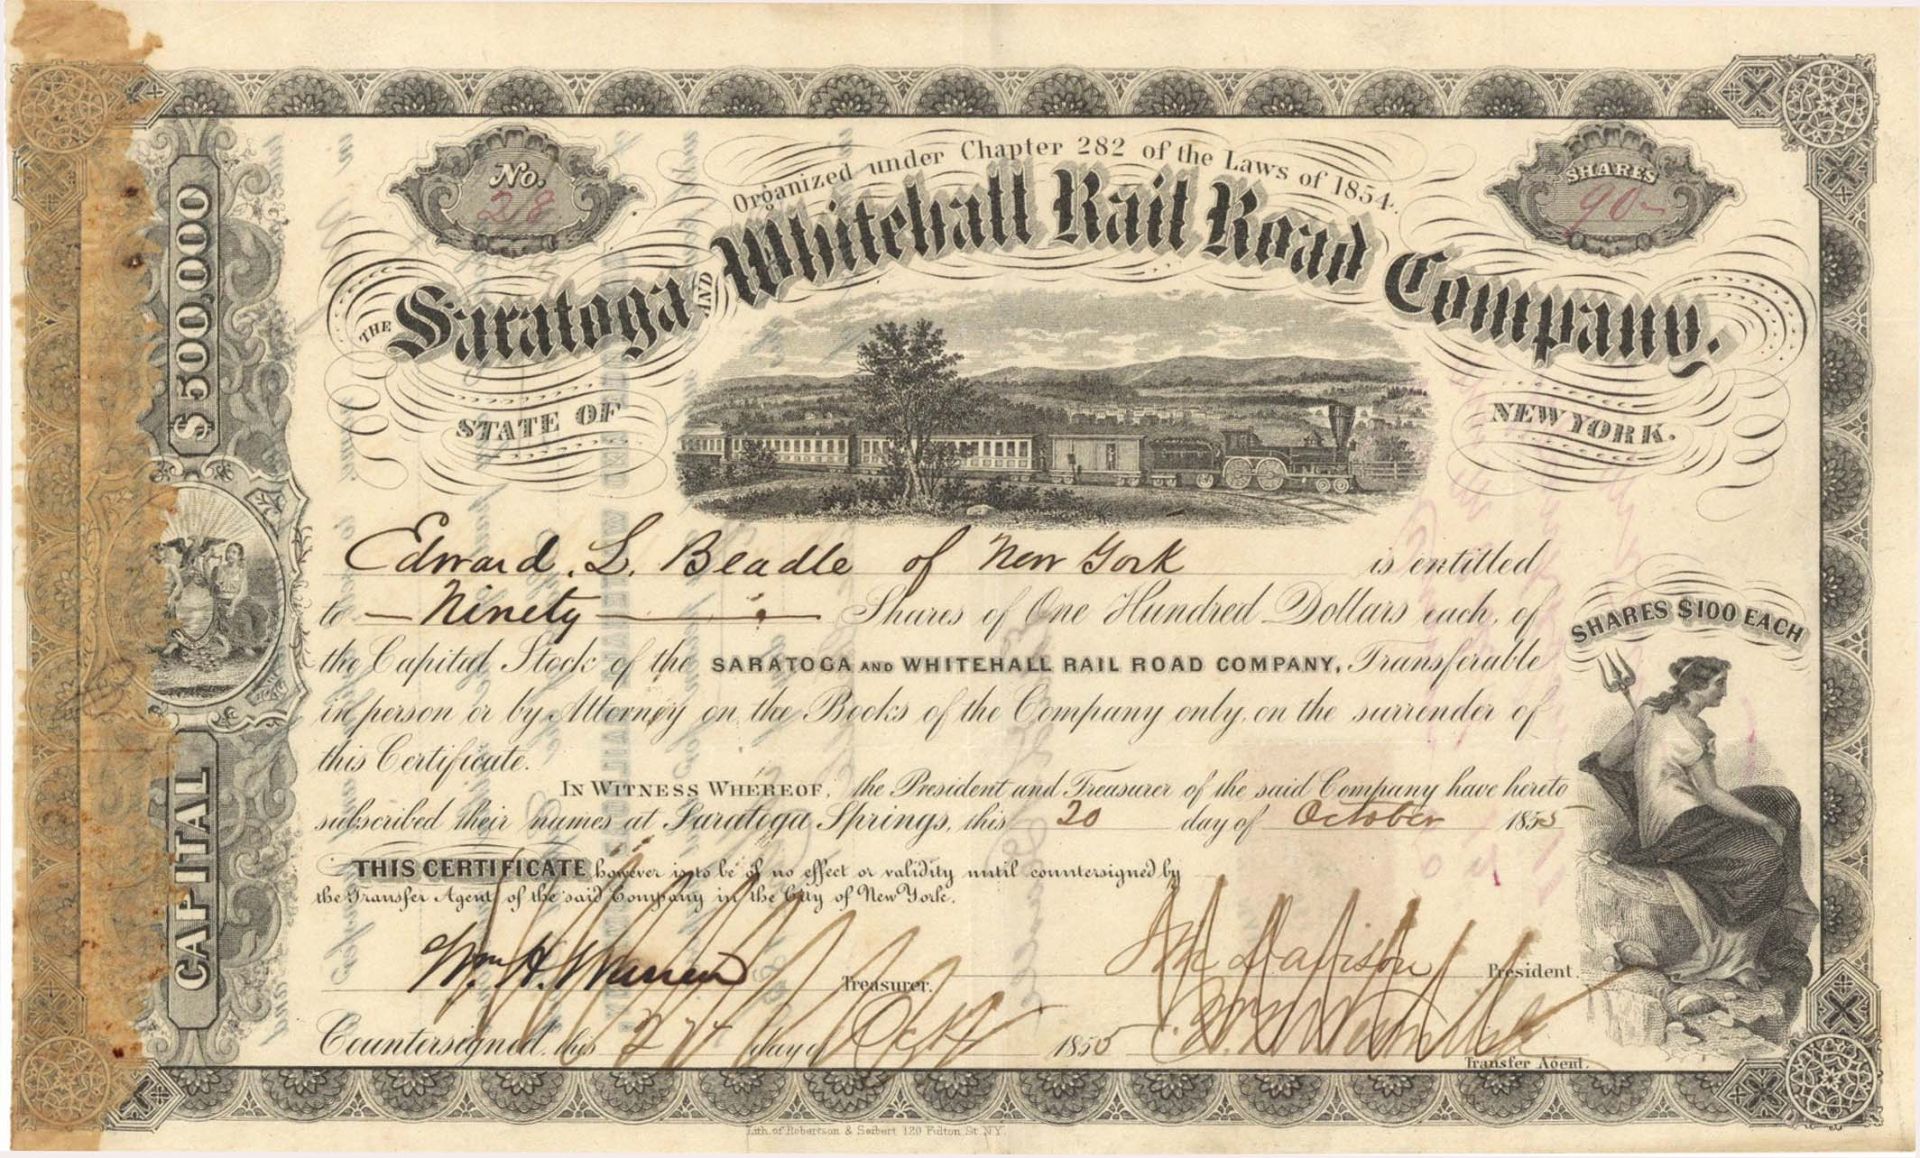 No.
28
SHARES
90-
Organized under Chapter 282 of the Laws of 1854.
THE Saratoga AND Whitehall Rail Road Company.
STATE OF NEW YORK.
$500,000
CAPITAL
Edward. L. Beadle of New York is entitled
to - Ninety - Shares of One Hundred Dollars each, of
the Capital Stock of the SARATOGA AND WHITEHALL RAIL ROAD COMPANY, Transferable
in person or by Attorney on the Books of the Company only, on the surrender of
this Certificate.
SHARES $100 EACH
IN WITNESS WHEREOF, the President and Treasurer of the said Company have hereto
subscribed their names at Saratoga Springs, this 20 day of October 1855
THIS CERTIFICATE however is to be of no effect or validity until countersigned by
the Transfer Agent of the said Company in the City of New York.
Wm. H. Warren Treasurer.
Davison President.
Countersigned this 27 day of 1855
Transfer Agent.
Lith. of Robertson & Seibert 120 Fulton St. N.Y.